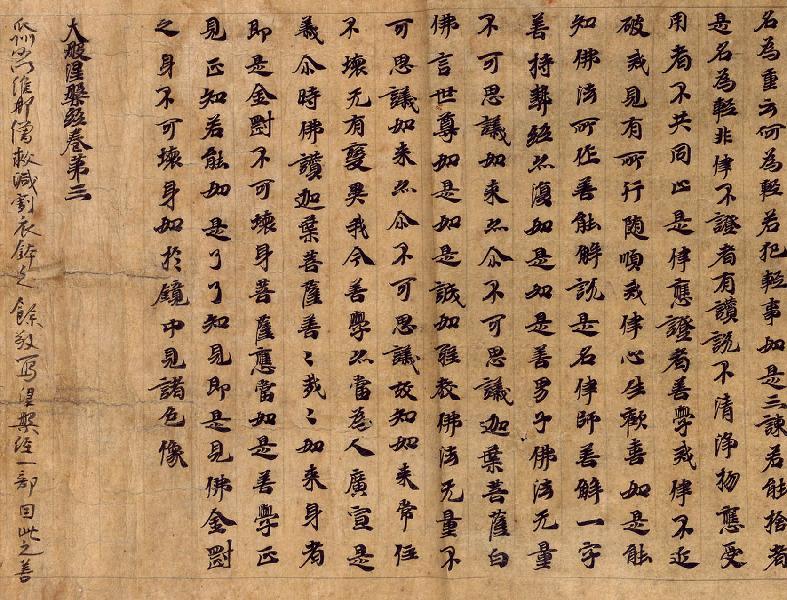 名為重云何為輕若犯輕事如是三諫若能捨者
是名為輕非律不證者有讚說不清淨物應受
用者不共同止是律應證者善學戒律不近
破戒見有所行随順戒律心生歡喜如是能
知佛法所作善能解說是名律師善解一字
善持契經亦復如是如是善男子佛法无量
不可思議如來亦尒不可思議迦葉菩薩白
佛言世尊如是如是誠如聖教佛法无量不
可思議如來亦尒不可思議故知如來常住
不壞无有變異我今善學亦當為人廣宣是
義尒時佛讚迦葉菩薩善〻哉〻如來身者
即是金剛不可壞身菩薩應當如是善學正
見正知若能如是了了知見即是見佛金剛
之身不可壞身如於鏡中見諸色像
大般涅槃經卷第三
瓜州沙門維那僧救減割衣鉢之餘敬寫涅槃經一部因此之善